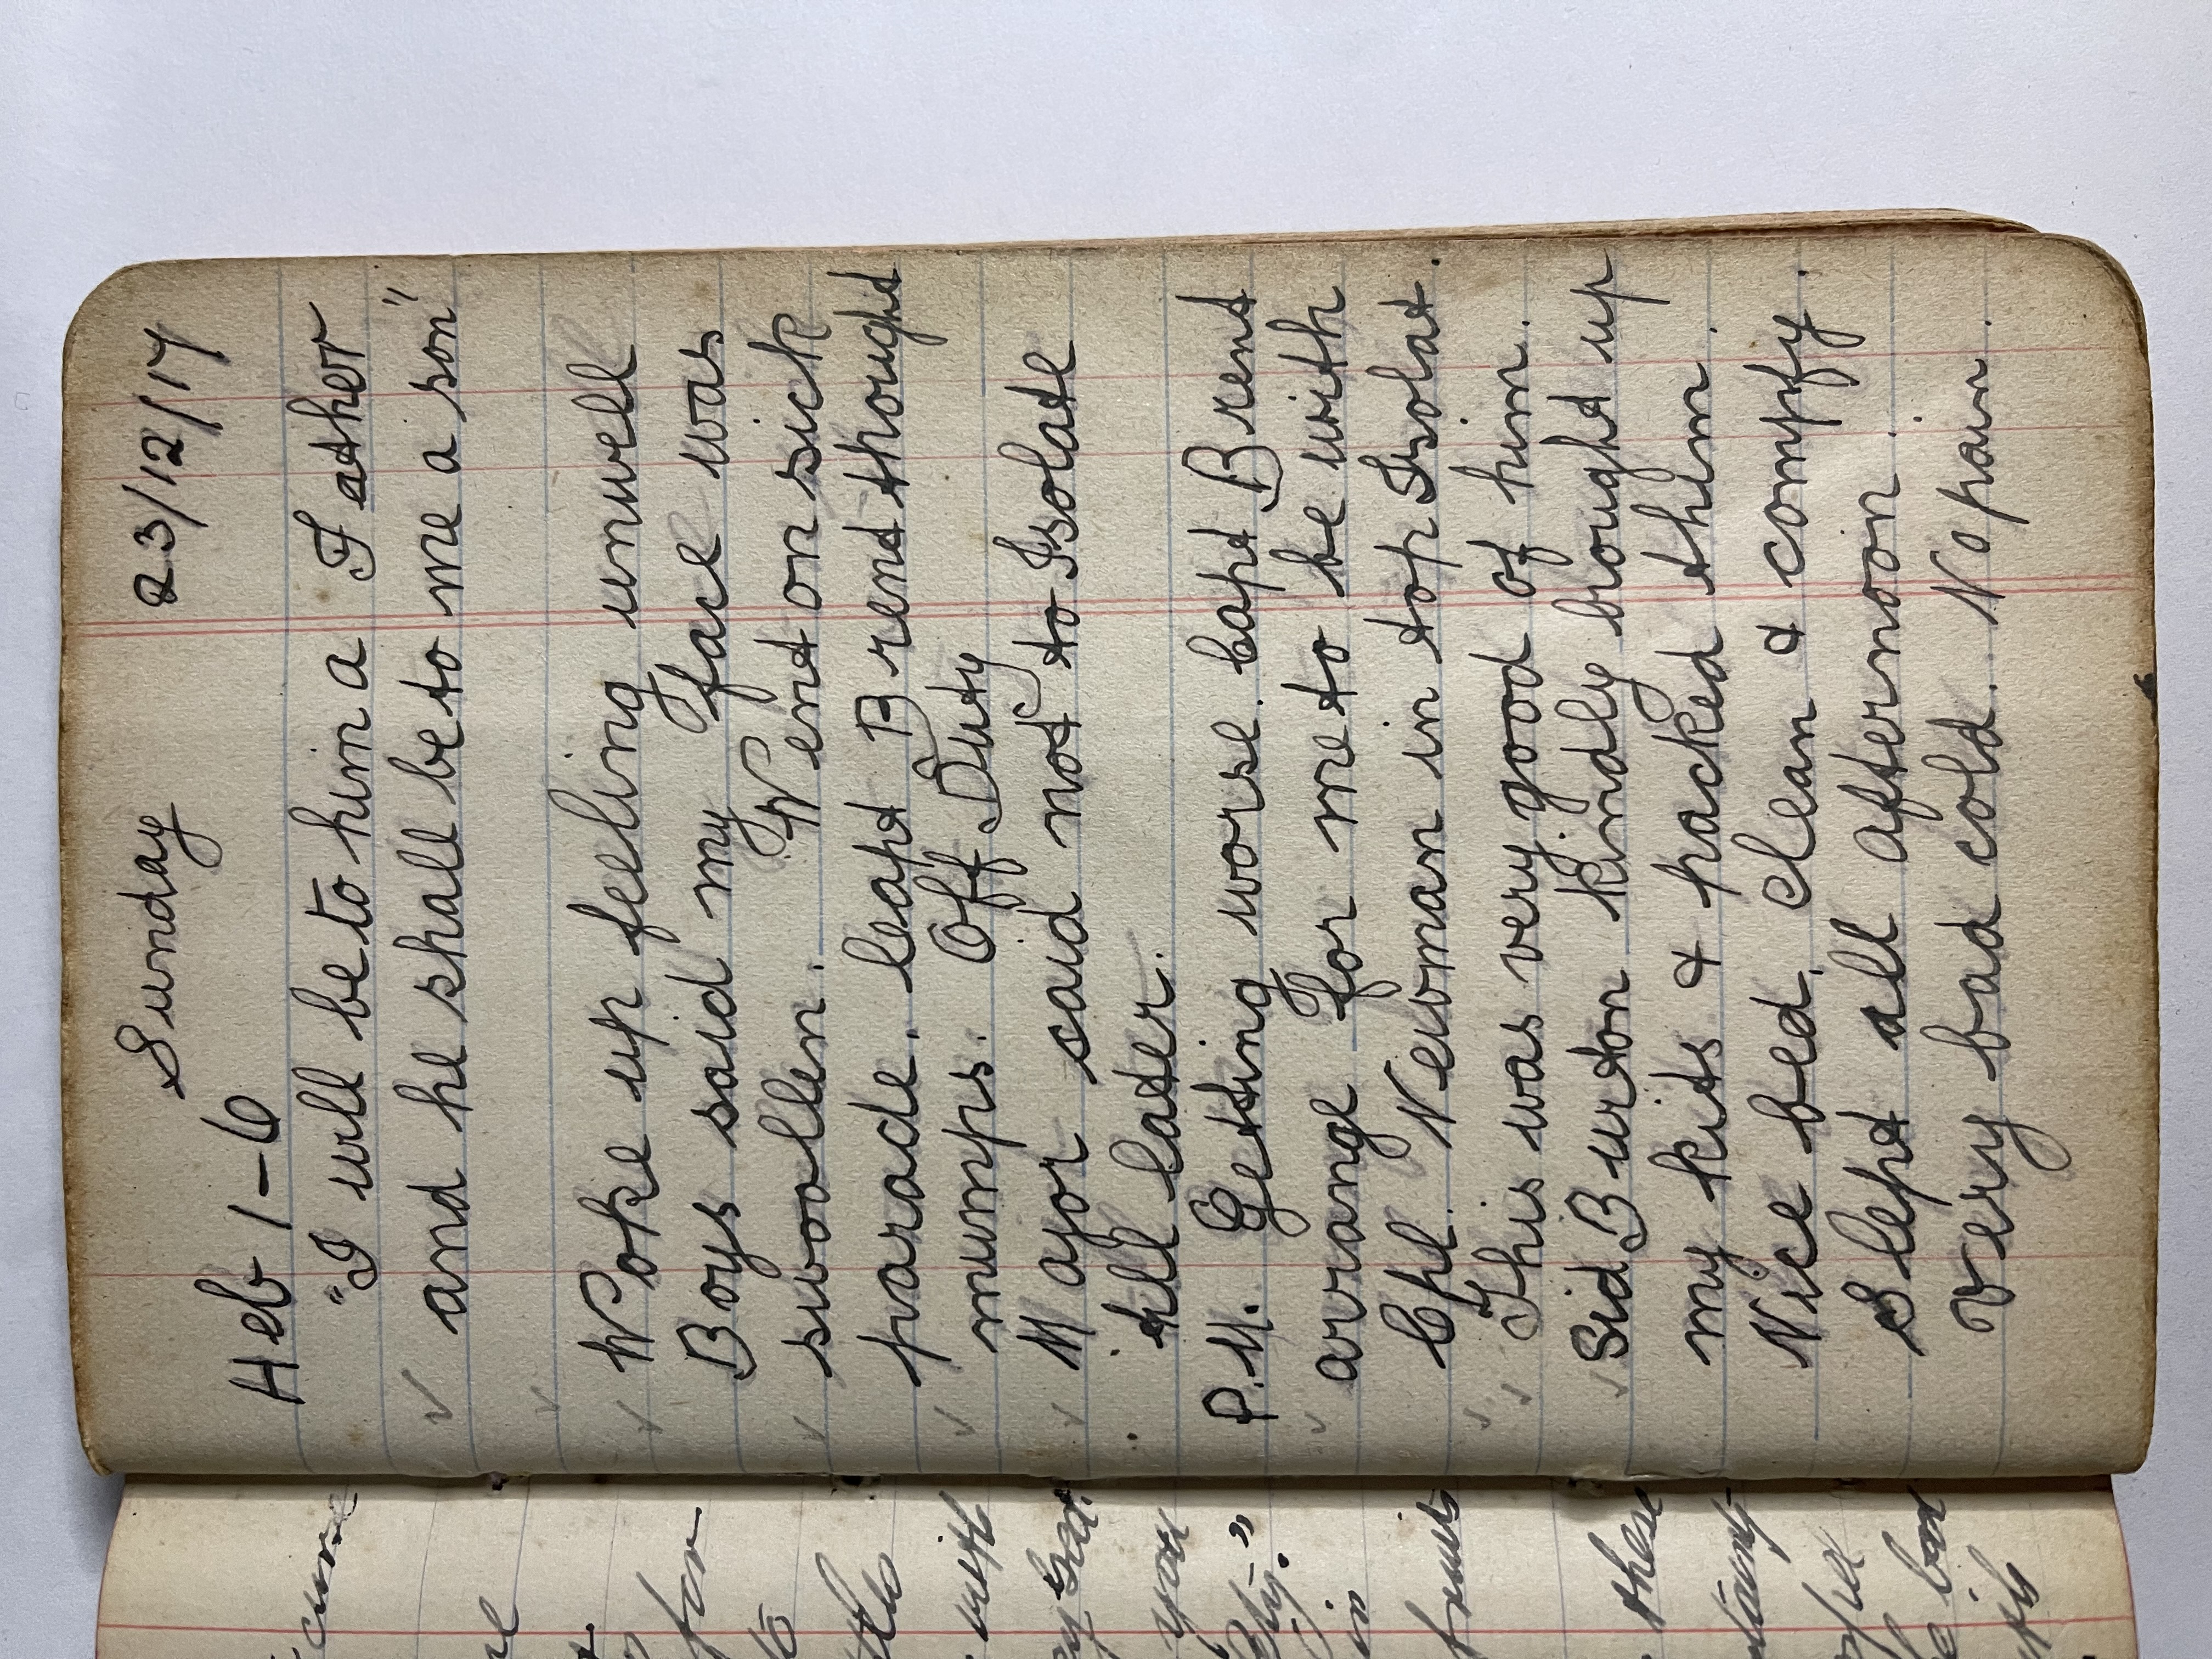 Sunday 23/12/17
Heb 1-6
"I will be to him a Father
and he shall be to me a son"
Woke up feeling unwell
Boys said my face was
swoollen. Went on sick
parade. Capt Brend thought
mumps. Off Duty
Major said not to Isolate
till later.
P.M. Getting worse. Capt Brend
arrange for me to be with
Cpl. Newman in top Isolat.
This was very good of him.
Sid Burton kindly brought up
my kits & packed them.
Nice bed, clean & compfy.
Slept all afternoon.
Very bad cold. No pain.
for
with
you
in
fruits
these